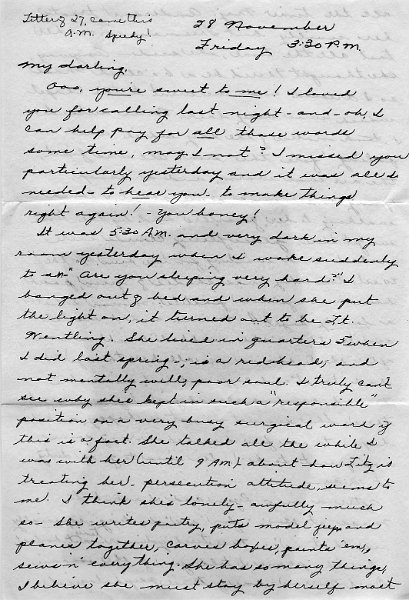 Letter of 27, came this
A.M. Speedy!
28 November
Friday 3:30 P.M.
My darling,
Ooo, you're sweet to me! I loved
you for calling last night - and - oh, I
can help pay for all those words
some time, may I not? I missed you
particularly yesterday and it was all I
needed - to hear you - to make things
right again! - You honey!
It was 5:30 A.M. and very dark in my
room yesterday when I woke suddenly
to an "Are you sleeping very hard?" I
banged out of bed and when she put
the light on, it turned out to be Lt.
Wentling. She lived in quarters I when
I did last spring, is a redhead, and
not mentally well, poor soul. I truly can't
see why she's kept in such a "responsible"
position on a very busy surgical ward if
this is a fact. She talked all the while I
was with her (until 7 AM) about how is
treating her. persecution attitude, seems to
me. I think she's lonely - awfully much
so - She writes poetry, puts model jeeps and
planes together, carves boxes, paints 'em,
sews n' everything. She has so many things,
I believe she must stay by herself most